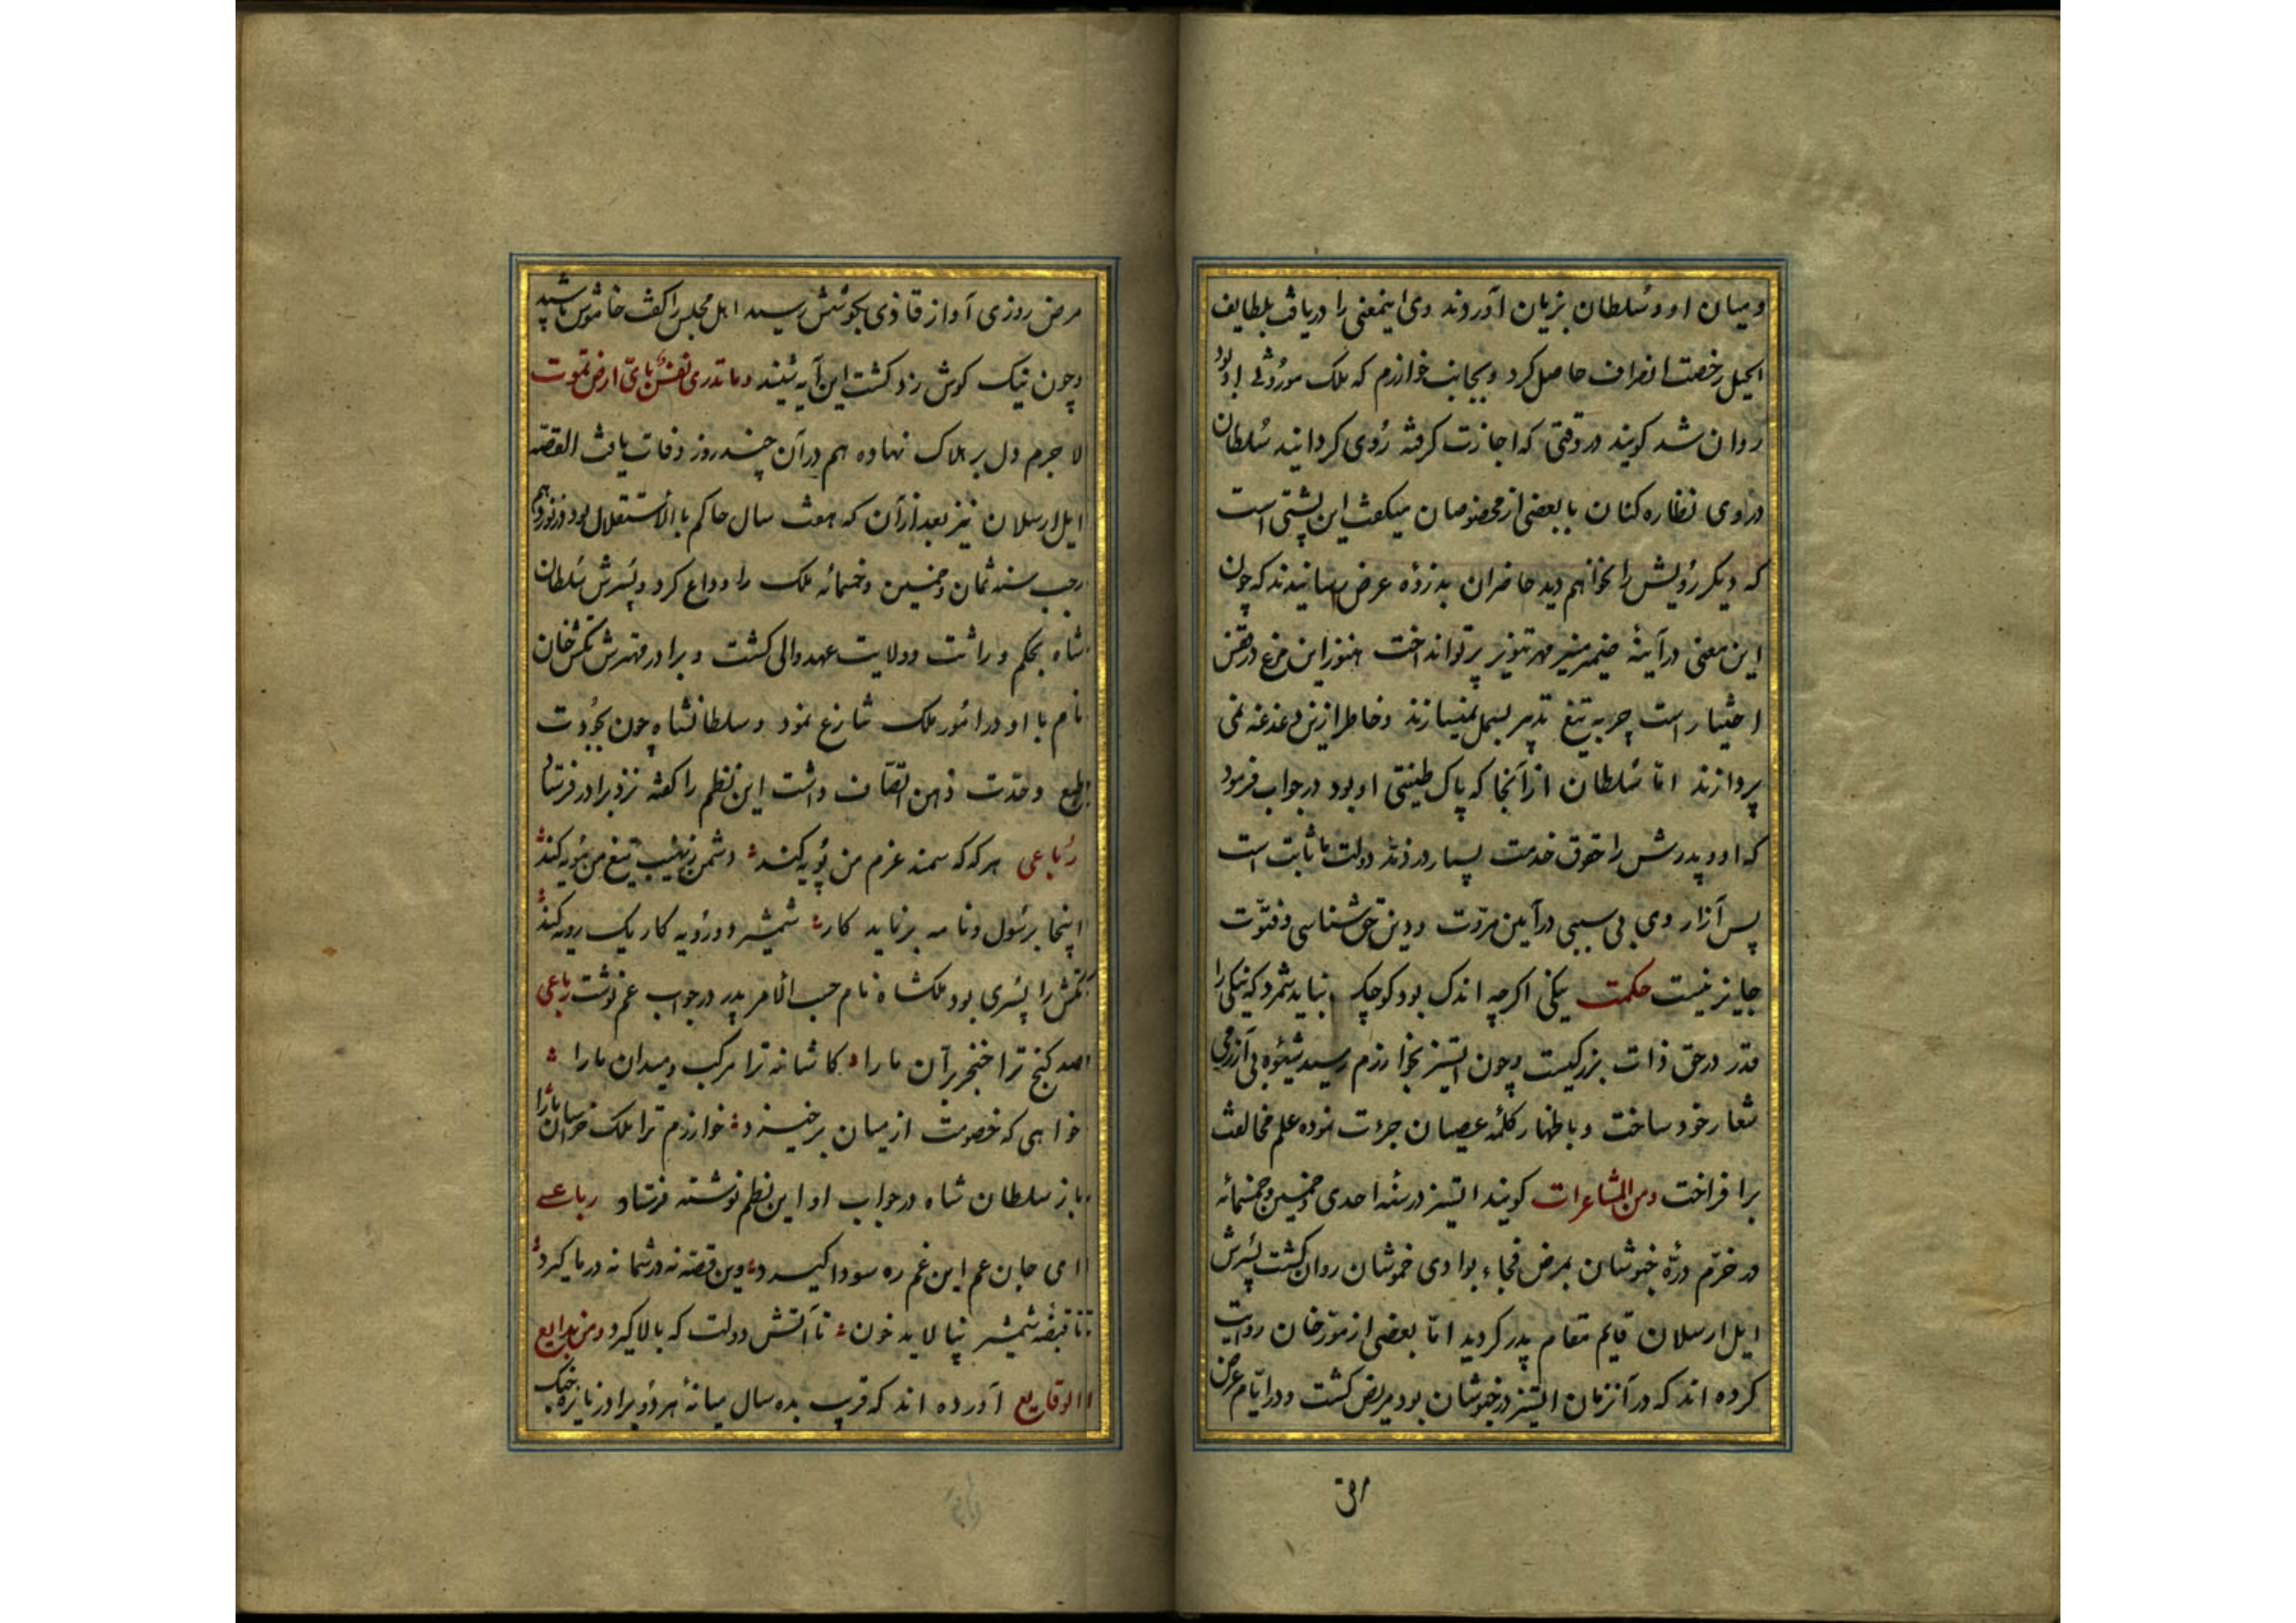 و میان او و سلطان بزیان آوردند وی اینمعنی را دریافت بلطایف
الحیل رخصت انصراف حاصل کرد و بجانب خوارزم که ملک موروثی او بود
روان شد کویند در وقتی که اجازت کرفته روی کردانید سلطان
در وی نظاره کنان با بعضی از مخصوصان میکفت این پشتی است
که دیکر رویش را نخواهم دید حاضران بذروه عرض رسانیدند که چون
این معنی در آینهٔ ضمیر منیر مهر تنویر پرتو انداخت هنوز این مرغ در قفس
اختیار است چرا به تیغ تدبیر بسمل نمیسازند و خاطر ازین دغدغه نمی
پردازند اما سلطان از آنجا که پاک طینتی او بود در جواب فرمود
که او و پدرش را حقوق خدمت بسیار در ذمهٔ دولت ما ثابت است
پس آزار وی بی سببی در آیین مروت و دین حق شناسی و فتوت
جایز نیست حکمت نیکی اکرچه اندک بود کوچک نباید شمرد که نیکی را
قدر در حق ذات بزرکیست و چون اتسیز بخوارزم رسید شیوه بی آزرمی
شعار خود ساخت و باظهار کلمهٔ عصیان جرءت نموده علم مخالفت
برافراخت و من المشاعرات کویند اتسیز در سنه احدی و خمسین و خمسمائه
در خرم درّه خبوشان بمرض فجاء بوادی خموشان روان کشت پسرش
ایل ارسلان قایم مقام پدر کردید اما بعضی از مورخان روایت
کرده اند که در آنزمان اتسیز در خبوشان بود مریض کشت و در ایام عرض
مرض
مرض روزی آواز قاری بکوشش رسید اهل مجلس را کفت خاموش باشید
و چون نیک کوش زد کشت این آیه شنید و ما تدری نفس بای ارض تموت
لا جرم دل بر هلاک نهاده هم در آن چند روز وفات یافت القصه
ایل ارسلان نیز بعد از آن که هفت سال حاکم بالاستقلال بود در نوزدهم
رجب سنه ثمان و خمسین و خمسمائه ملک را وداع کرد و پسرش سلطان
شاه بحکم وراثت و ولایت عهد والی کشت و برادر مهترش تکش خان
نام با او در امور ملک تنازع نمود و سلطانشاه چون بجودت
طبع و حدّت ذهن اتصاف داشت این نظم را کفته نزد برادر فرستاد
رباعی هر که که سمند عزم من پویه کند دشمن ز نهیب تیغ من مویه کند
اینجا برسول و نامه برناید کار شمشیر دو رویه کار یک رویه کند
تکش را پسری بود ملکشاه نام حسب الامر پدر در جواب عم نوشت رباعی
صد کنج ترا خنجر بران ما را کاشانه ترا مرکب و میدان ما را
خواهی که خصومت از میان برخیزد خوارزم ترا ملک خراسان ما را
باز سلطان شاه در جواب او این نظم نوشته فرستاد رباعی
ای جان عم این غم ره سودا کیرد وین قصه نه در شما نه در ما کیرد
تا قبضه شمشیر نیالاید خون تا آتش دولت که بالا کیرد و من بدایع
الوقایع آورده اند که قریب بده سال میانهٔ هر دو برادر نایره جنک